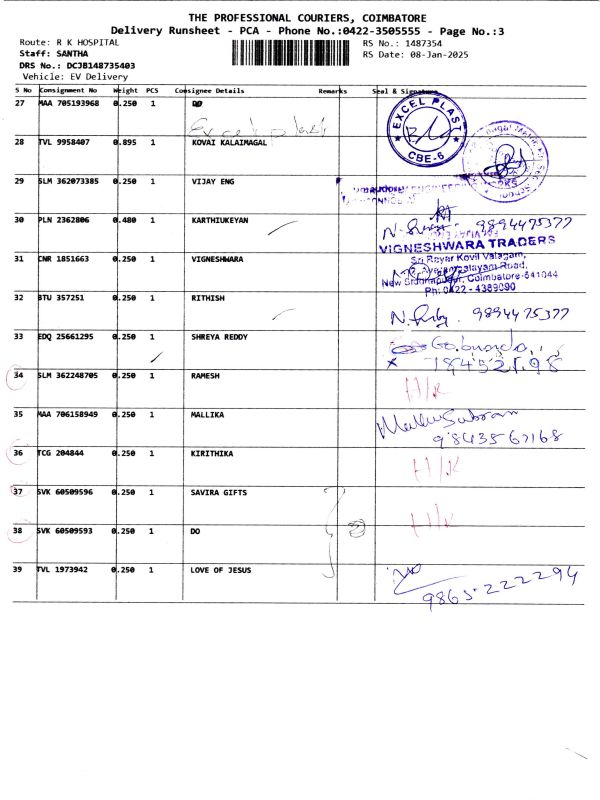 THE PROFESSIONAL COURIERS, COIMBATORE
Delivery Runsheet - PCA - Phone No.:0422-3505555 - Page No.:3
Route: R K HOSPITAL RS No.: 1487354
Staff: SANTHA RS Date: 08-Jan-2025
DRS No.: DCJB148735403
Vehicle: EV Delivery
S No Consignment No Weight PCS Consignee Details Remarks Seal & Signature
27 MAA 705193968 0.250 1 DO
Excel plast
EXCEL PLAST
CBE-6
28 TVL 9958407 0.895 1 KOVAI KALAIMAGAL
29 SLM 362073385 0.250 1 VIJAY ENG
30 PLN 2362806 0.480 1 KARTHIUKEYAN 9894475377
VIGNESHWARA TRADERS
31 CNR 1851663 0.250 1 VIGNESHWARA Sri Rayar Kovil Valagam,
New Siddhapudur, Coimbatore-641044
Ph: 0422 - 4389090
32 BTU 357251 0.250 1 RITHISH
9894475377
33 EDQ 25661295 0.250 1 SHREYA REDDY
34 SLM 362248705 0.250 1 RAMESH H/K
35 MAA 706158949 0.250 1 MALLIKA
9843567168
36 TCG 204844 0.250 1 KIRITHIKA H/K
37 SVK 60509596 0.250 1 SAVIRA GIFTS H/K
38 SVK 60509593 0.250 1 DO
39 TVL 1973942 0.250 1 LOVE OF JESUS
9865-222294